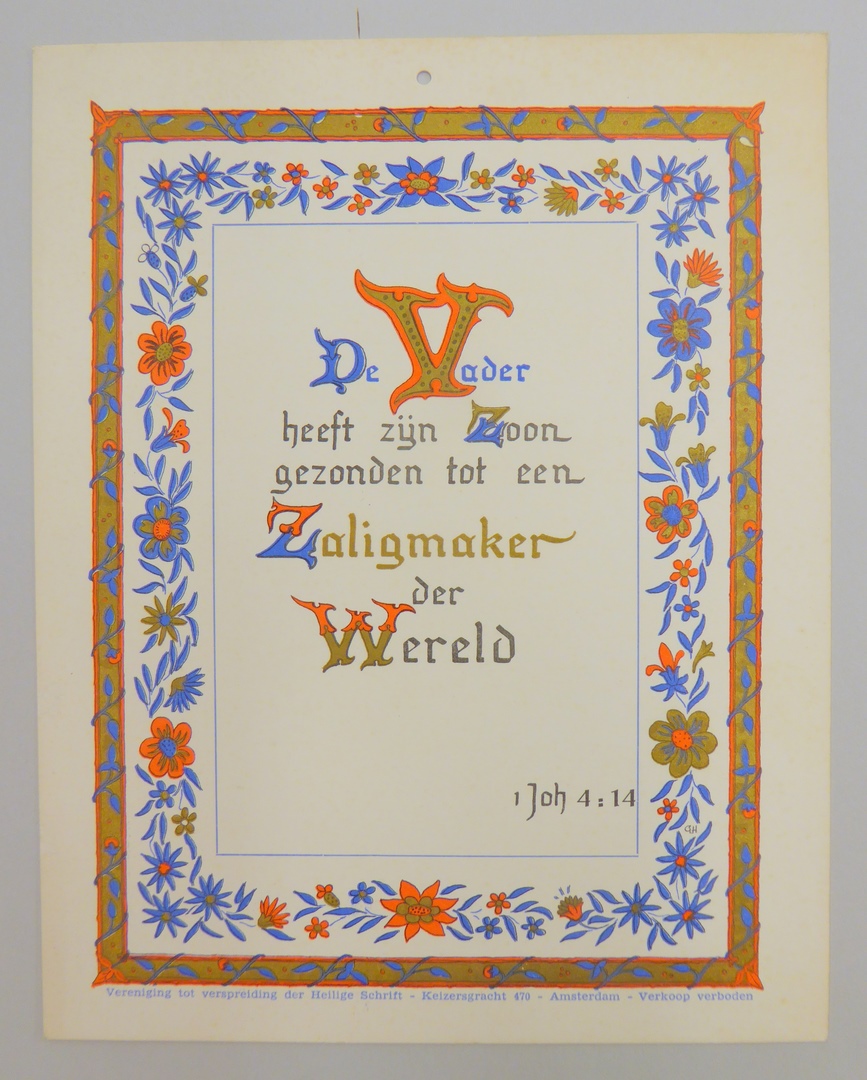 De Vader
heeft zijn Zoon
gezonden tot een
Zaligmaker
der
Wereld
1 Joh 4:14
Vereniging tot verspreiding der Heilige Schrift - Keizersgracht 470 - Amsterdam - Verkoop verboden